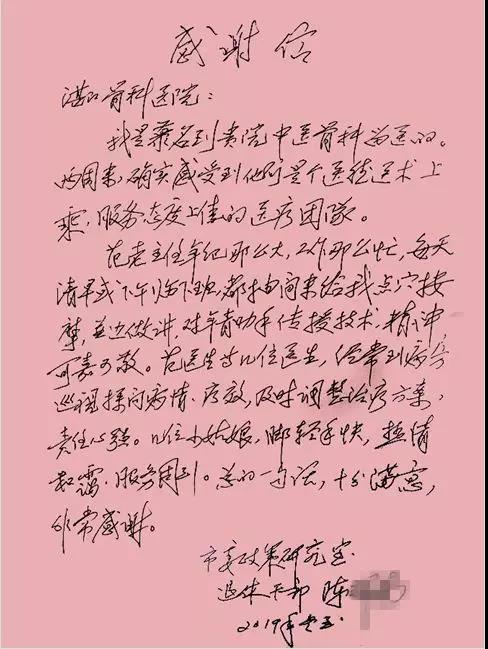 感谢信
湛江骨科医院：
我是慕名到贵院中医骨科留医的。
两周来，确实感受到他们是个医德医术上
乘，服务态度上佳的医疗团队。
范老主任年纪那么大，工作那么忙，每天
清早或下午临下班，都抽闲来给我点穴按
摩，并边做讲，对年青助手传授技术，精神
可嘉可敬。范医生与几位医生，经常到病房
巡视探问病情、疗效，及时调整治疗方案，
责任心强。几位小姑娘，脚轻手快，热情
和蔼，服务周到。总的一句话，十分满意，
非常感谢。
市委政策研究室
退休干部 陈
2019年